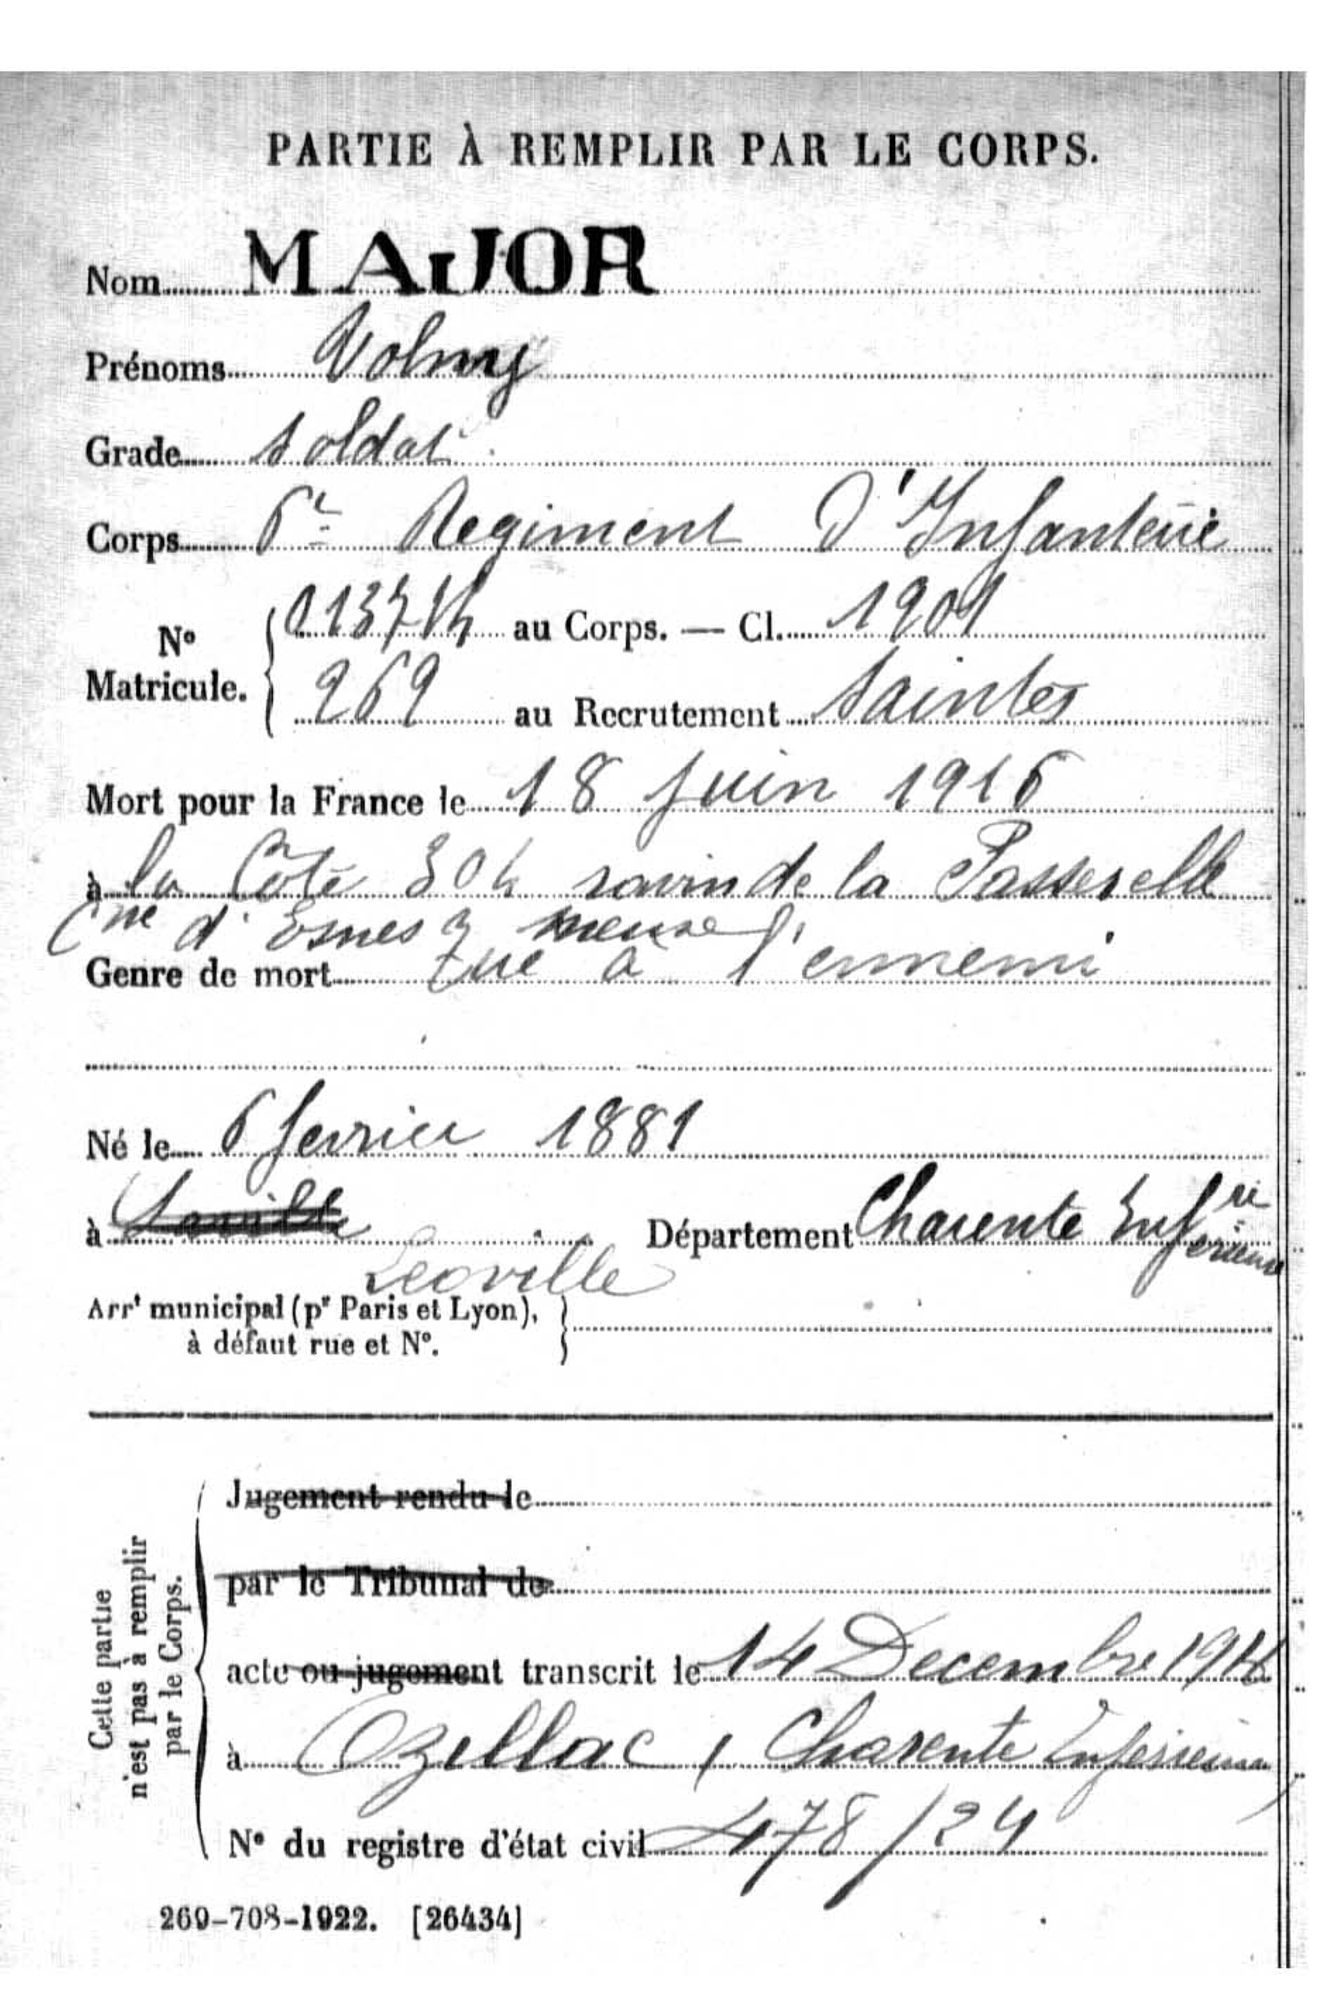 PARTIE À REMPLIR PAR LE CORPS.
Nom MAJOR
Prénoms Volny
Grade soldat
Corps 6e Regiment d'Infanterie
No Matricule. 01371h au Corps. — Cl. 1901
969 au Recrutement Saintes
Mort pour la France le 18 juin 1916
à la Côte 304 ravin de la Passerelle
Cne d'Esnes meuse
Genre de mort tué à l'ennemi
Né le 6 fevrier 1881
à Département Charente Infre
Inférieure
Leoville
Arrt municipal (pr Paris et Lyon),
à défaut rue et No.
Cette partie
n'est pas à remplir
par le Corps.
Jugement rendu le
par le Tribunal de
acte ou jugement transcrit le 14 Decembre 191
à Ozillac, Charente Inférieure
No du registre d'état civil 478/24
269-708-1922. [26434]